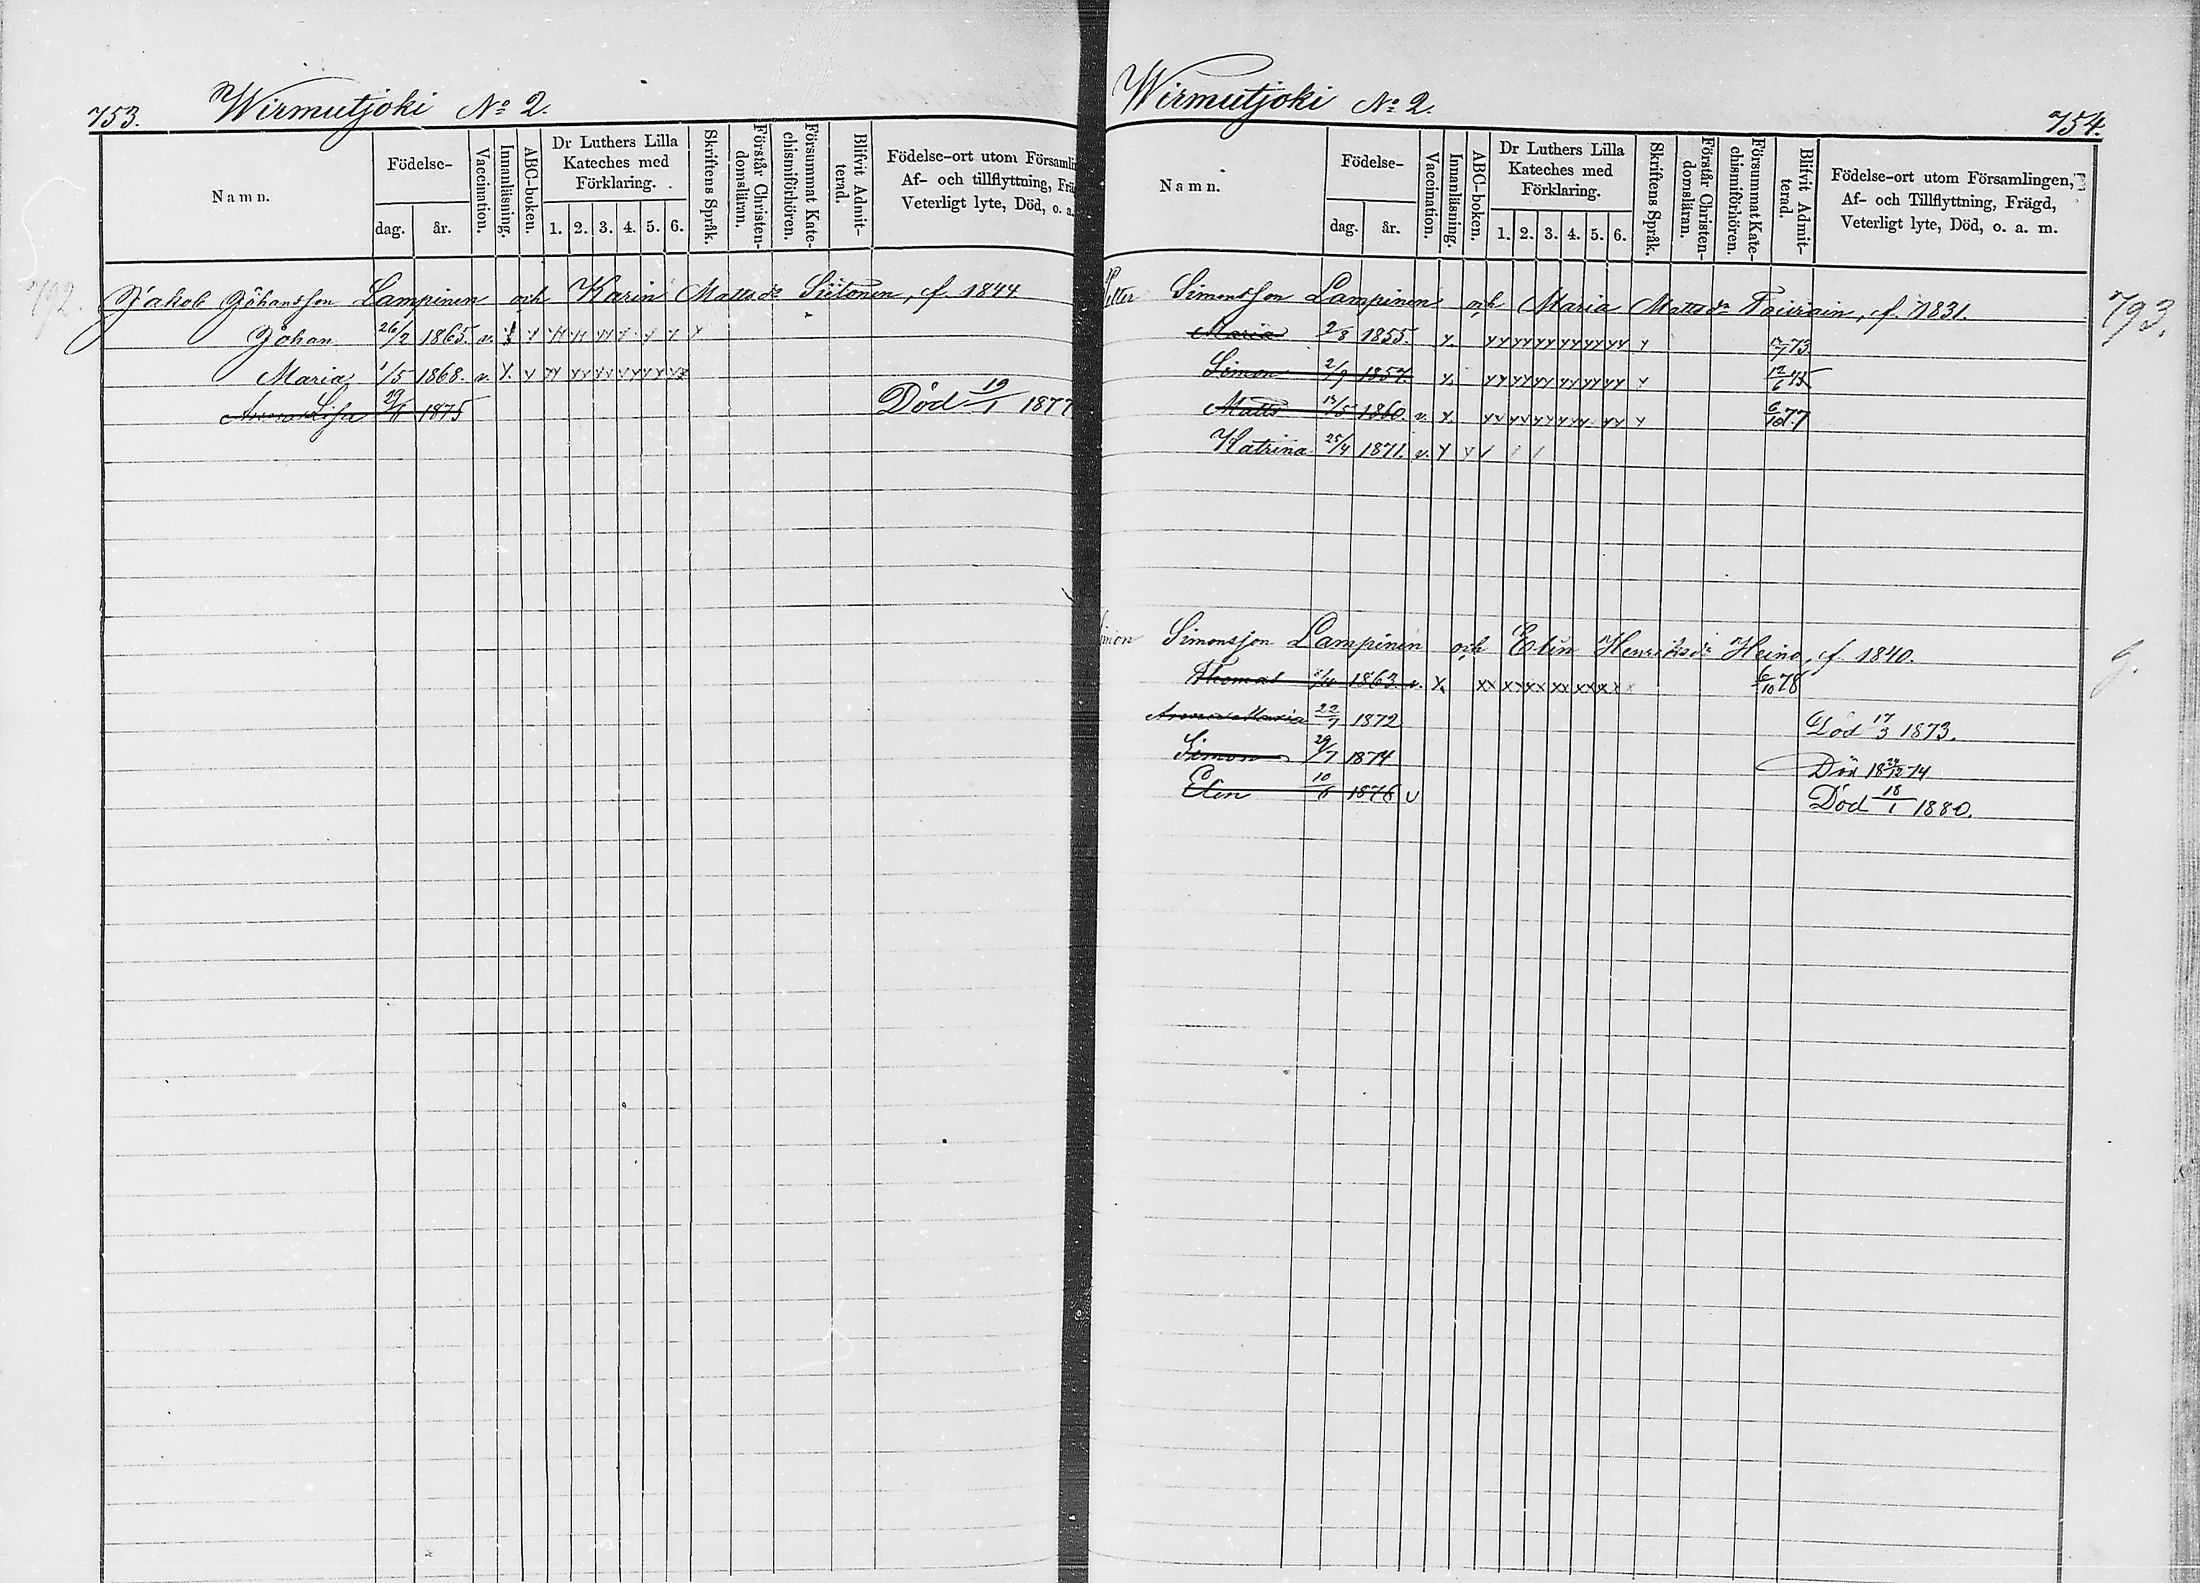 753. Wirmutjoki No 2.
Namn.
Födelse-
dag.
år.
Vaccination.
Innanläsning.
ABC-boken.
Dr Luthers Lilla
Kateches med
Förklaring.
1. 2. 3. 4. 5. 6.
Skriftens Språk.
Förstår Christen-
domsläran.
Försummat Kate-
chismiförhören.
Blifvit Admit-
terad.
Födelse-ort utom Församl
Af- och tillflyttning,
Veterligt lyte, Död, o. a.
792. Jakob Johansson Lampinen och Karin Mattsdr Siitonen, f. 1844
Johan 26/2 1865. v.
Maria 1/5 1868. v.
Anna Lisa 1875 Död 19/1 1877
Wirmutjoki No 2. 754.
Namn.
Födelse-
dag.
år.
Vaccination.
Innanläsning.
ABC-boken.
Dr Luthers Lilla
Kateches med
Förklaring.
1. 2. 3. 4. 5. 6.
Skriftens Språk.
Förstår Christen-
domsläran.
Försummat Kate-
chismiförhören.
Blifvit Admit-
terad.
Födelse-ort utom Församlingen,
Af- och Tillflyttning, Frägd,
Veterligt lyte, Död, o. a. m.
Petter Simonsson Lampinen och Maria Mattsdr f. 1831. 793.
Maria 2/8 1855. 73
Simon 2/9 1857. 12/6 75
Matts 1860. v. 6/10 77
Katrina 25/4 1871. v.
Simonsson Lampinen och Elin Henriksdr Heino, f. 1840. g.
Thomas 1863. v. 6/10 78
Anna Maria 22/7 1872 Död 17/3 1873.
Simon 29/7 1874 Död 18 24/12 74
Elin 1876 v Död 18/1 1880.